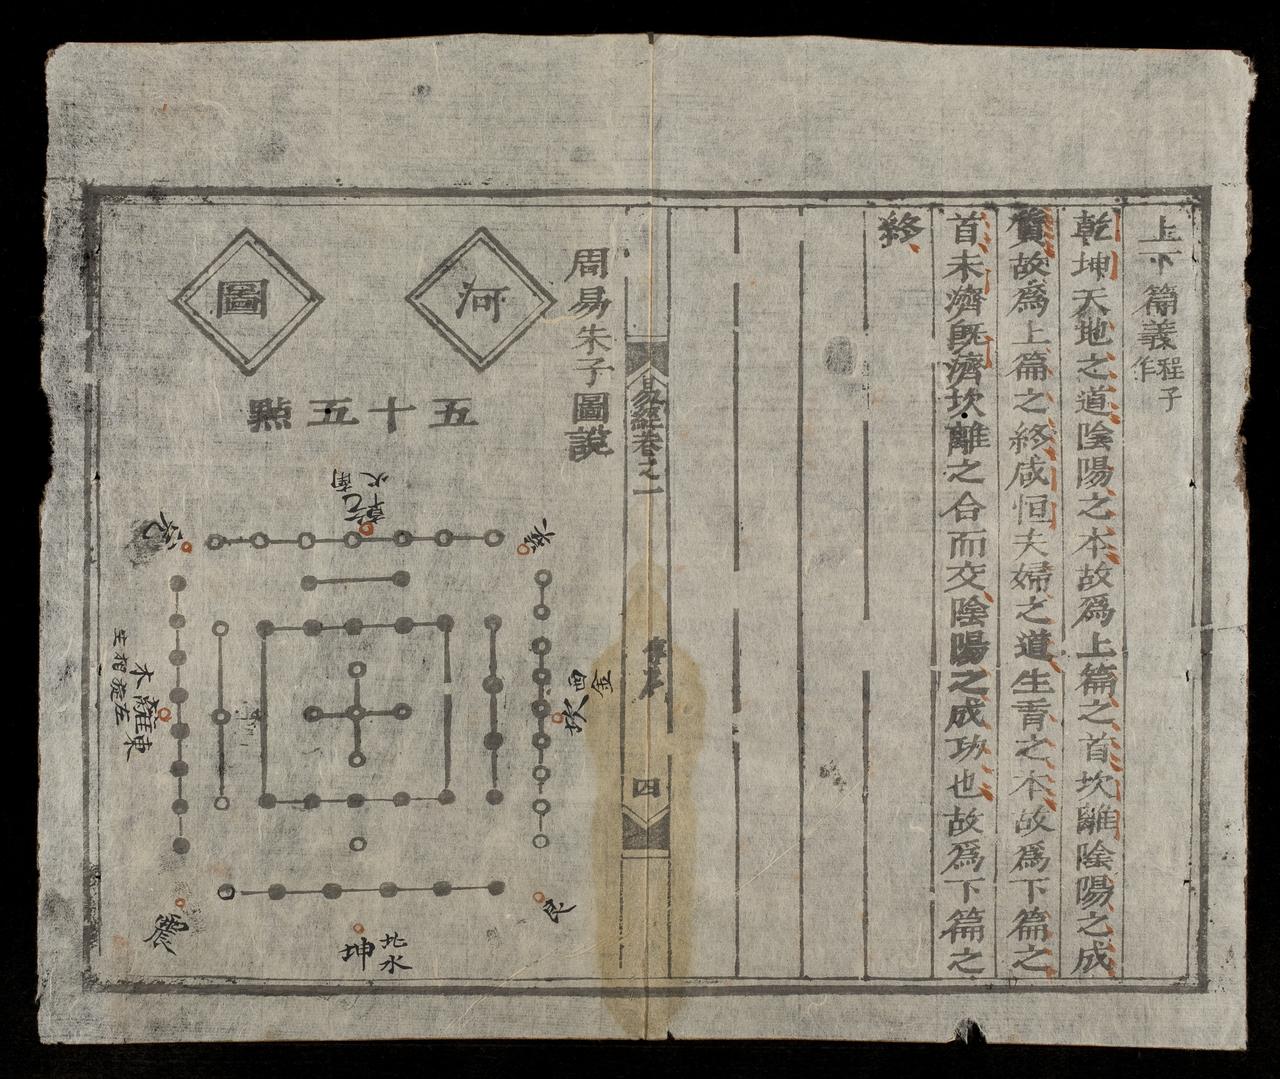 上下篇義程子作
乾坤天地之道陰陽之本故爲上篇之首坎離陰陽之成
質故爲上篇之終咸恒夫婦之道生育之本故爲下篇之
首未濟旣濟坎離之合而交陰陽之成功也故爲下篇之
終
易經卷之一
四
周易朱子圖說
河
圖
五十五點
南火
乾
兌
巽
金西
坎
東離木
左旋相生
震
北水
坤
艮